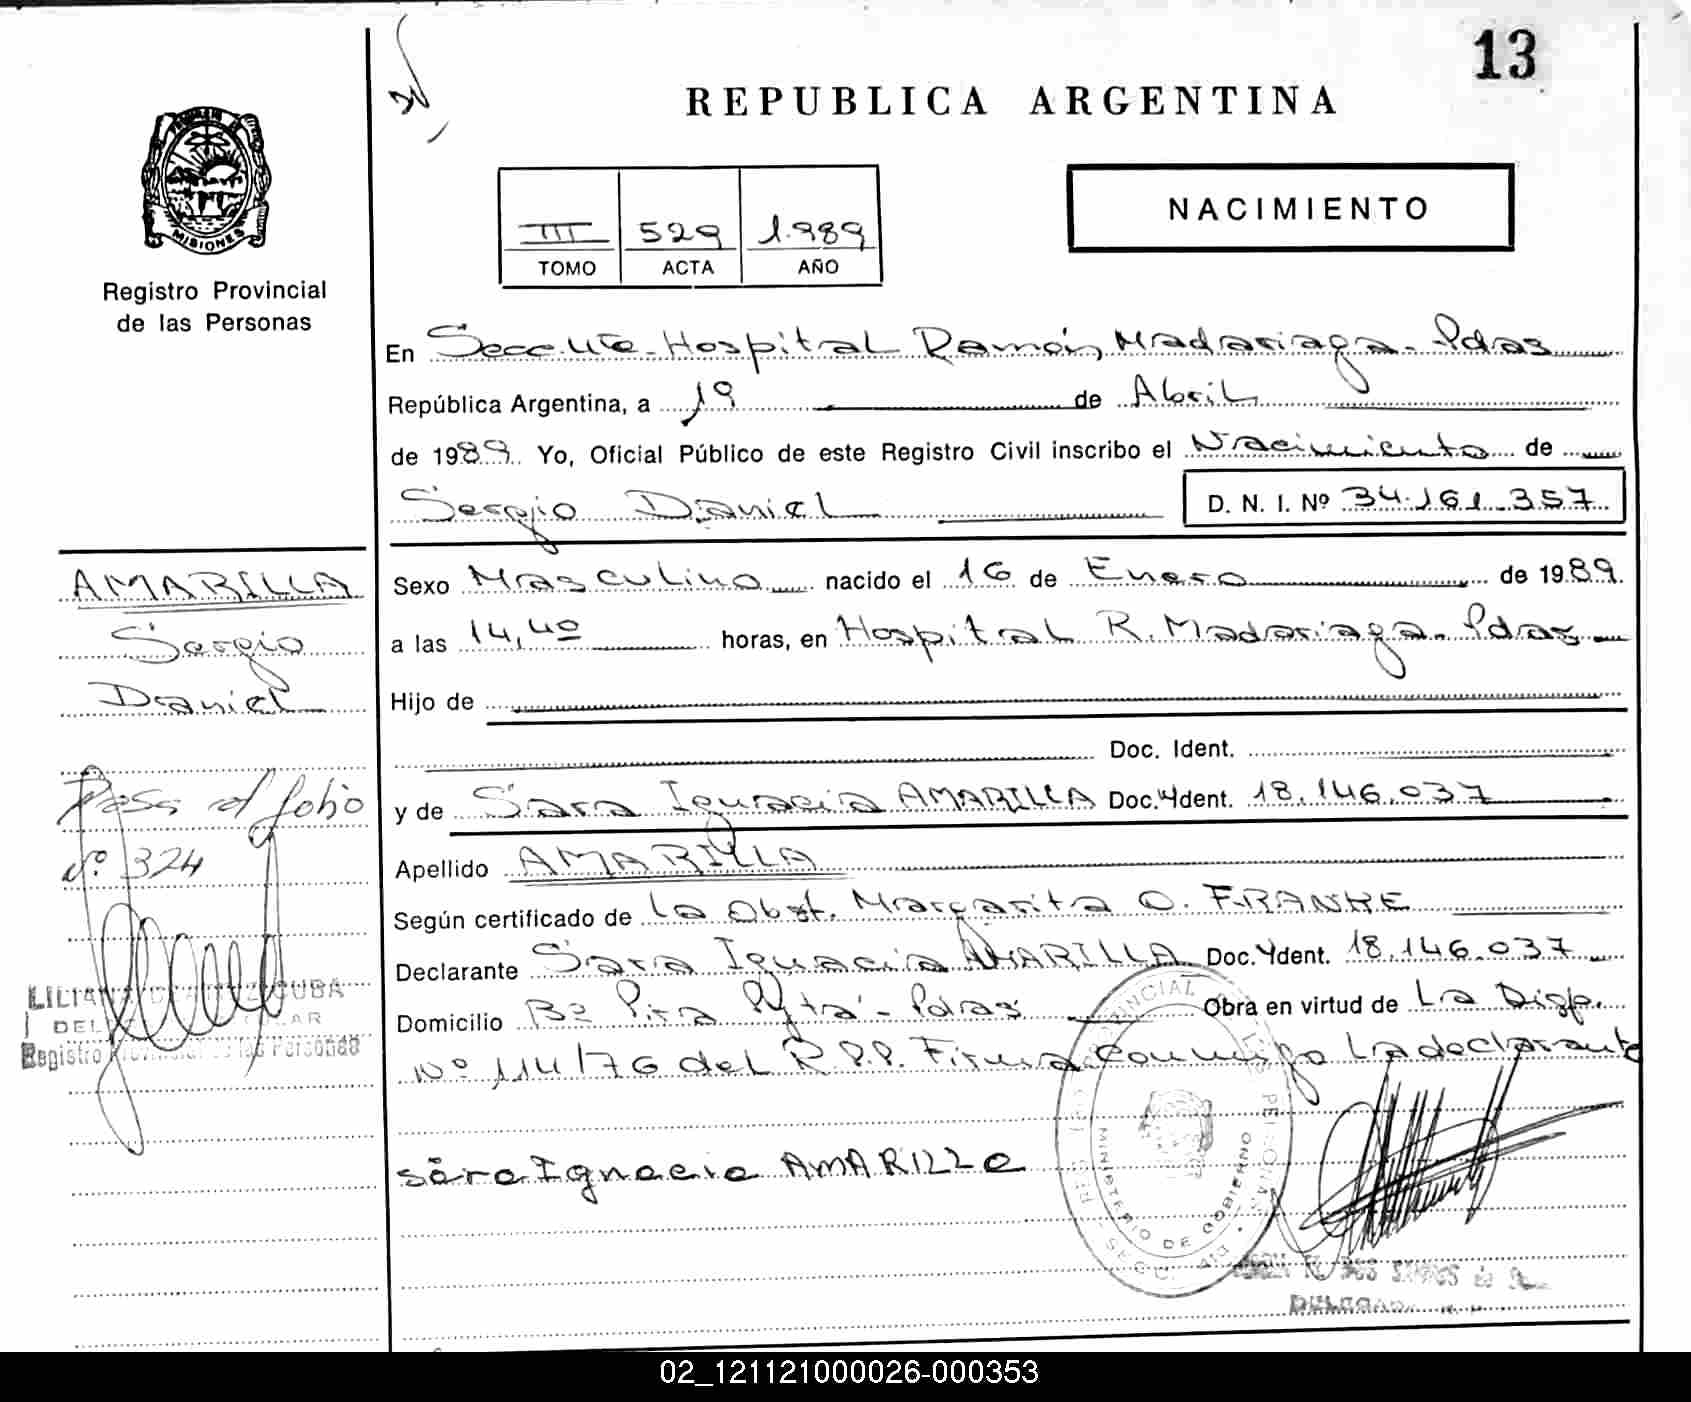 13
REPUBLICA ARGENTINA
NACIMIENTO
III 529 1.989
TOMO ACTA AÑO
MISIONES
Registro Provincial
de las Personas
En Secc. Hospital Ramón Madariaga - Pdas
República Argentina, a 19 de Abril
de 1989. Yo, Oficial Público de este Registro Civil inscribo el Nacimiento de
Sergio Daniel D. N. I. Nº 34.161.357
AMARILLA
Sergio
Daniel
Sexo Masculino nacido el 16 de Enero de 1989.
a las 14,40 horas, en Hospital R. Madariaga - Pdas
Hijo de
Doc. Ident.
y de Sara Ignacia AMARILLA Doc. Ident. 18.146.037
Apellido AMARILLA
Según certificado de La Obst. Margarita O. FRANKE
Declarante Sara Ignacia AMARILLA Doc. Ident. 18.146.037
Domicilio Bº Pira Pytá - Pdas Obra en virtud de La Disp.
Nº 114/76 del R.P.P. Firma conmigo La declarante
Pasa al folio
Nº 324
LILIANA CUBA
Registro Provincial de las Personas
sara Ignacia AMARILLA
MINISTERIO DE GOBIERNO
02_121121000026-000353